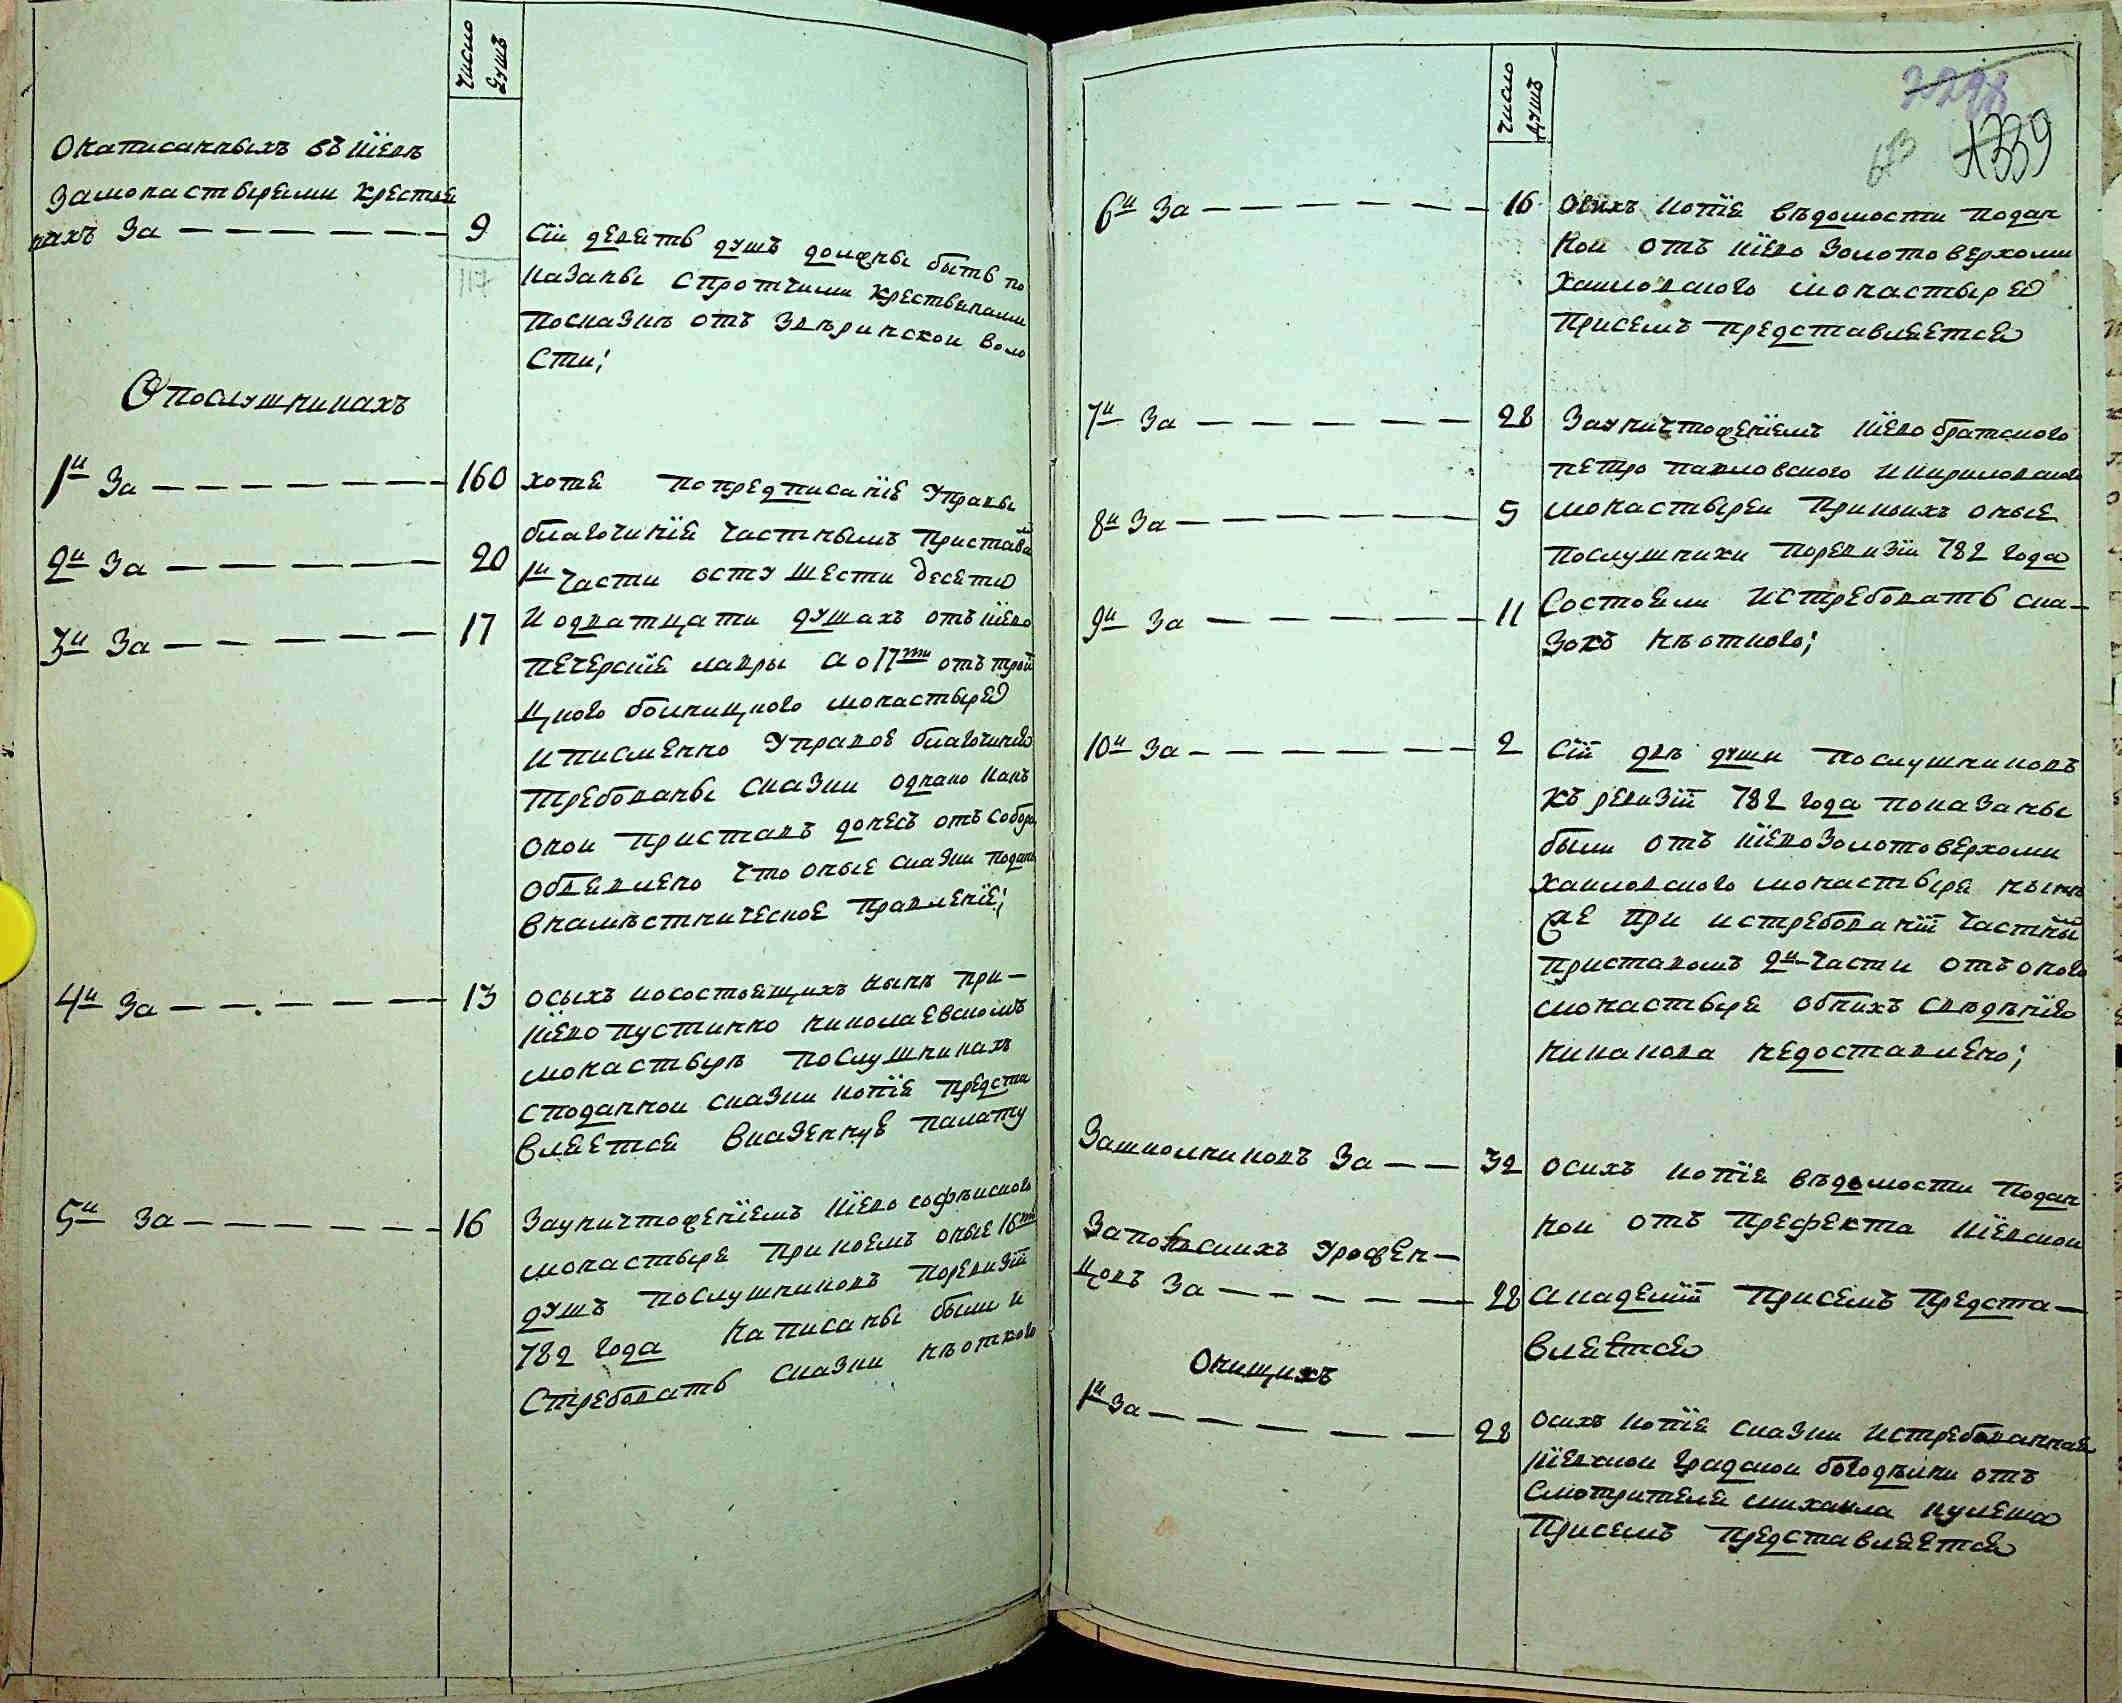 число
душъ
О написанныхъ въ Кіевѣ
за монастырями крестья
нахъ За — — — — — — — 9
117
сіи девять душъ должны быть по
казаны с протчими крестьянами
по сказкѣ отъ Звѣринской воло
сти;
О послушникахъ
1и За — — — — — — — 160
2и За — — — — — — 20
3и За — — — — — — 17
хотя по предписанію управы
благочинія частнымъ приставомъ
1и части о сту шести десяти
и о дватцати душахъ отъ Кіево
печерскія лавры а о 17ти отъ трои
цкого болницкого монастыря
и писменно управою благочинія
требованы сказки однако какъ
оной приставъ донесъ отъ собора
объявлено что оные сказки поданы
в намѣстническое правленіе;
4и За — — — — — — 13
о сыхъ и о состоящихъ нынѣ при-
Кіево пустинно николаевскомъ
монастырѣ послушникахъ
с поданной сказки копія предста
вляется в казенную палату
5и За — — — — — — — 16
За уничтоженіемъ Кіево софѣиского
монастыря при коемъ оные 16ть
душъ послушниковъ по ревизіи
782 года написаны были и
стребовать сказки нѣ откого
число
душъ
2298
1339
6и За — — — — — — — 16
О сихъ копія вѣдомости подан
ной отъ Кіево золотоверхоми
хаиловского монастыря
при семъ представляется
7и За — — — — — — 28
8и За — — — — — — — 5
9и За — — — — — — 11
За уничтоженіемъ Кіево братского
петро павловского и кириловского
монастырей при коихъ оные
послушники по ревизіи 782 года
состояли истребовать ска-
зокъ нѣ откого;
10и За — — — — — — 2
Сіи двѣ души послушниковъ
къ ревизіи 782 года показаны
были отъ Кіево золотоверхоми
хаиловского монастыря нынѣ
же при истребованіи частнымъ
приставомъ 2и части отъ оного
монастыря об нихъ свѣдѣнія
никакова недоставлено;
За школниковъ За — — 32
За польскихъ урожен-
цовъ За — — — — — 28
о сихъ копія вѣдомости подан
ной отъ префекта Кіевской
академіи при семъ предста-
вляется
О нищихъ
1и За — — — — — — 28
О сихъ копія сказки истребованная
Кіевской градской богодѣлни отъ
смотрителя михаила кулеша
при семъ представляется